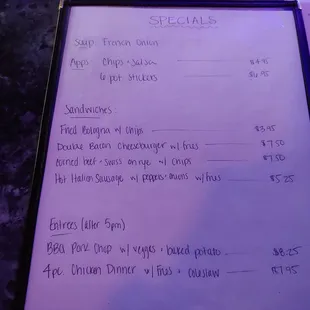 SPECIALS
Soup: French Onion
Apps: Chips + Salsa $4.95
6 pot stickers $6.95
Sandwiches:
Fried Bologna w/ chips $3.95
Double Bacon Cheeseburger w/ fries $7.50
Corned beef + swiss on rye w/ chips $7.50
Hot Italian Sausage w/ peppers + onions w/ fries $5.25
Entrees (after 5pm)
BBQ Pork Chop w/ veggies + baked potato $8.25
4pc. Chicken Dinner w/ fries + coleslaw $7.95